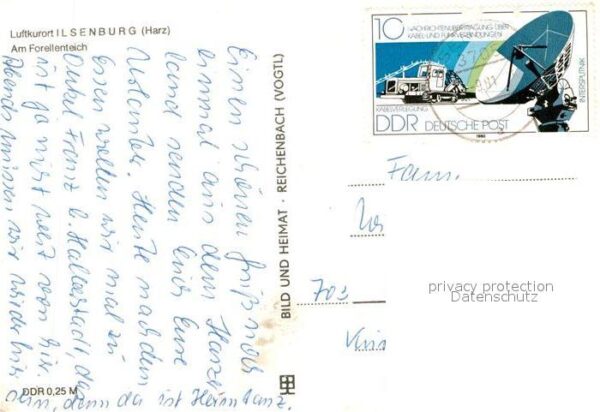 Luftkurort ILSENBURG (Harz)
Am Forellenteich
Einen schönen Gruß noch
einmal aus dem Harzer
land senden Euch Eure
Heute nachdem
Essen wollen wir mal zu
Onkel Franz b. Halberstadt, das
ist ja nicht weit von hir.
Abends müssen wir wieder hir
sein, denn da ist Heimtanz.
DDR 0,25 M
BILD UND HEIMAT · REICHENBACH (VOGTL)
10
NACHRICHTENÜBERTRAGUNG ÜBER
KABEL- UND FUNKVERBINDUNGEN
KABELVERLEGUNG
INTERSPUTNIK
DDR DEUTSCHE POST
1980
Fam.
703
privacy protection
Datenschutz